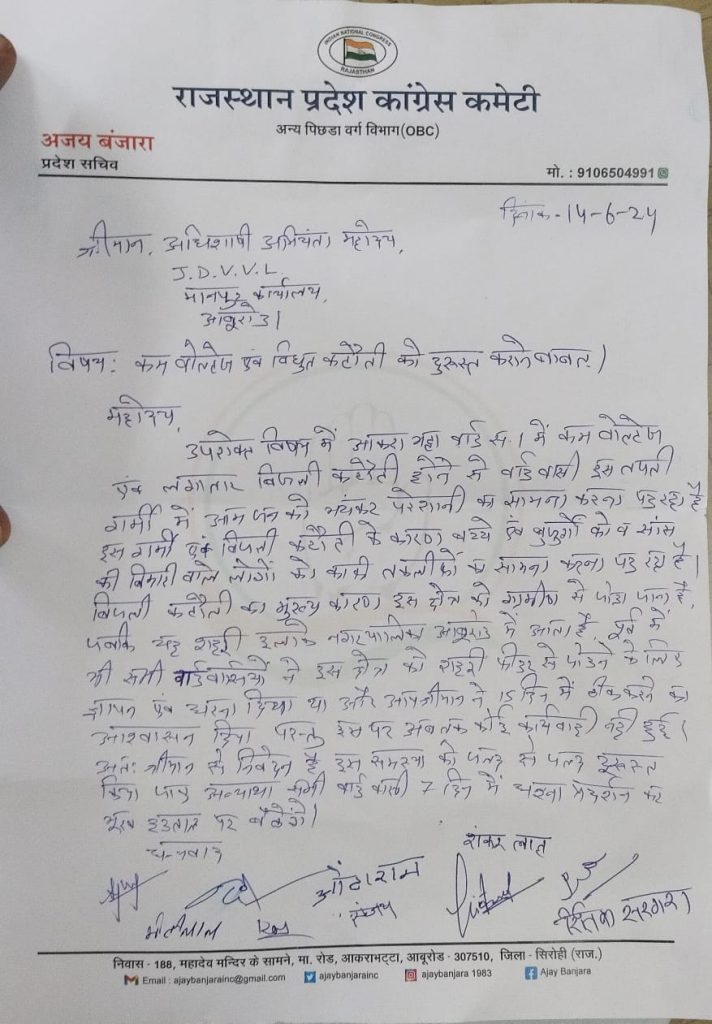 INDIAN NATIONAL CONGRESS
RAJASTHAN
राजस्थान प्रदेश कांग्रेस कमेटी
अन्य पिछडा वर्ग विभाग(OBC)
अजय बंजारा
प्रदेश सचिव
मो. : 9106504991
दिनांक - 14-6-24
श्रीमान, अधिशाषी अभियंता महोदय,
J.D.V.V.L.
मानपुर कार्यालय,
आबुरोड।
विषय: कम वोल्टेज एवं विधुत कटौती को दुरूस्त कराने बाबत।
महोदय,
उपरोक्त विषय में आकरा भट्टा वार्ड स. 1 में कम वोल्टेज
एवं लगातार बिजली कटौती होने से वार्ड वासी इस तपती
गर्मी में आम जन को भयंकर परेशानी का सामना करना पड़ रहा है
इस गर्मी एवं बिजली कटौती के कारण बच्चे एवं बुजुर्गो को व सांस
की बिमारी वाले लोगों को काफी तकलीफों का सामना करना पड़ रहा है।
बिजली कटौती का मुख्य कारण इस क्षेत्र को ग्रामीण से जोडा जाना है,
जबकि यह शहरी इलाके नगरपालिका आबुरोड में आता है, पूर्व में
भी सभी वार्डवासियों ने इस क्षेत्र को शहरी फीडर से जोडने के लिए
ज्ञापन एवं धरना दिया था और आप श्रीमान ने 15 दिन में ठीक करने का
आश्वासन दिया परन्तु इस पर अब तक कोई कार्यवाही नही हुई।
अतः श्रीमान से निवेदन है इस समस्या को जल्द से जल्द दुरूस्त
किया जाए अन्यथा सभी वार्ड वासी 7 दिन में धरना प्रदर्शन कर
भूख हडताल पर बैठेंगे।
धन्यवाद
शंकर लाल
ओटाराम
मोतीलाल
संजय
सरगरा
निवास - 188, महादेव मन्दिर के सामने, मा. रोड, आकराभट्टा, आबूरोड - 307510, जिला - सिरोही (राज.)
Email : ajaybanjarainc@gmail.com ajaybanjarainc ajaybanjara 1983 Ajay Banjara